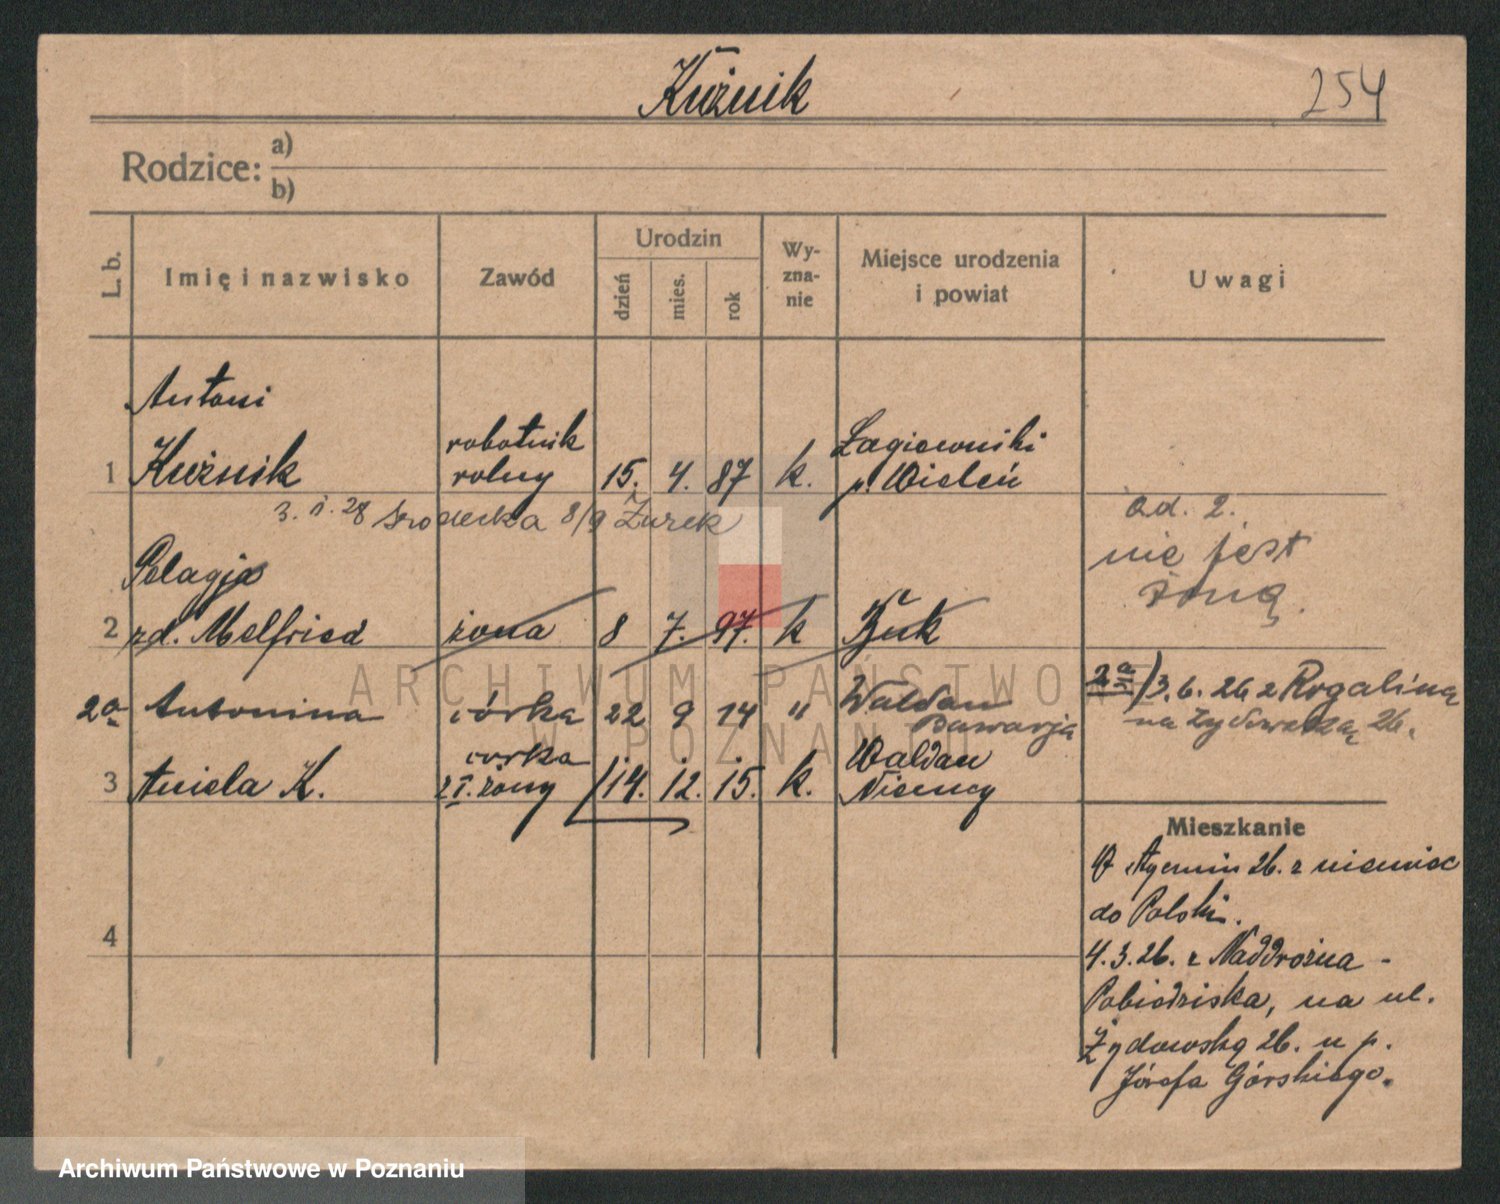 Kuźnik
254
Rodzice: a)
b)
L. b.
Imię i nazwisko
Zawód
Urodzin
dzień
mies.
rok
Wy-
zna-
nie
Miejsce urodzenia
i powiat
Uwagi
Antoni
1 Kuźnik robotnik rolny 15. 4. 87 k. Łagiewniki
p. Wieleń
3. II. 28 Środecka 8/9 Żurek
Ad. 2.
nie jest
żoną.
Pelagja
2 zd. Melfried żona 8 7. 97. k Buk
2a Antonina córka 22 9 14 " Waldau
Bawarja
2a) 3.6.26 z Rogalina
na Żydowską 26.
3 Aniela K. córka
z I. żony 14. 12. 15. k. Waldau
Niemcy
Mieszkanie
W styczniu 26. z niemiec
do Polski.
4
4.3.26. z Naddrożna -
Pobiedziska, na ul.
Żydowską 26. u p.
Józefa Górskiego.
ARCHIWUM PAŃSTWOWE
W POZNANIU
Archiwum Państwowe w Poznaniu